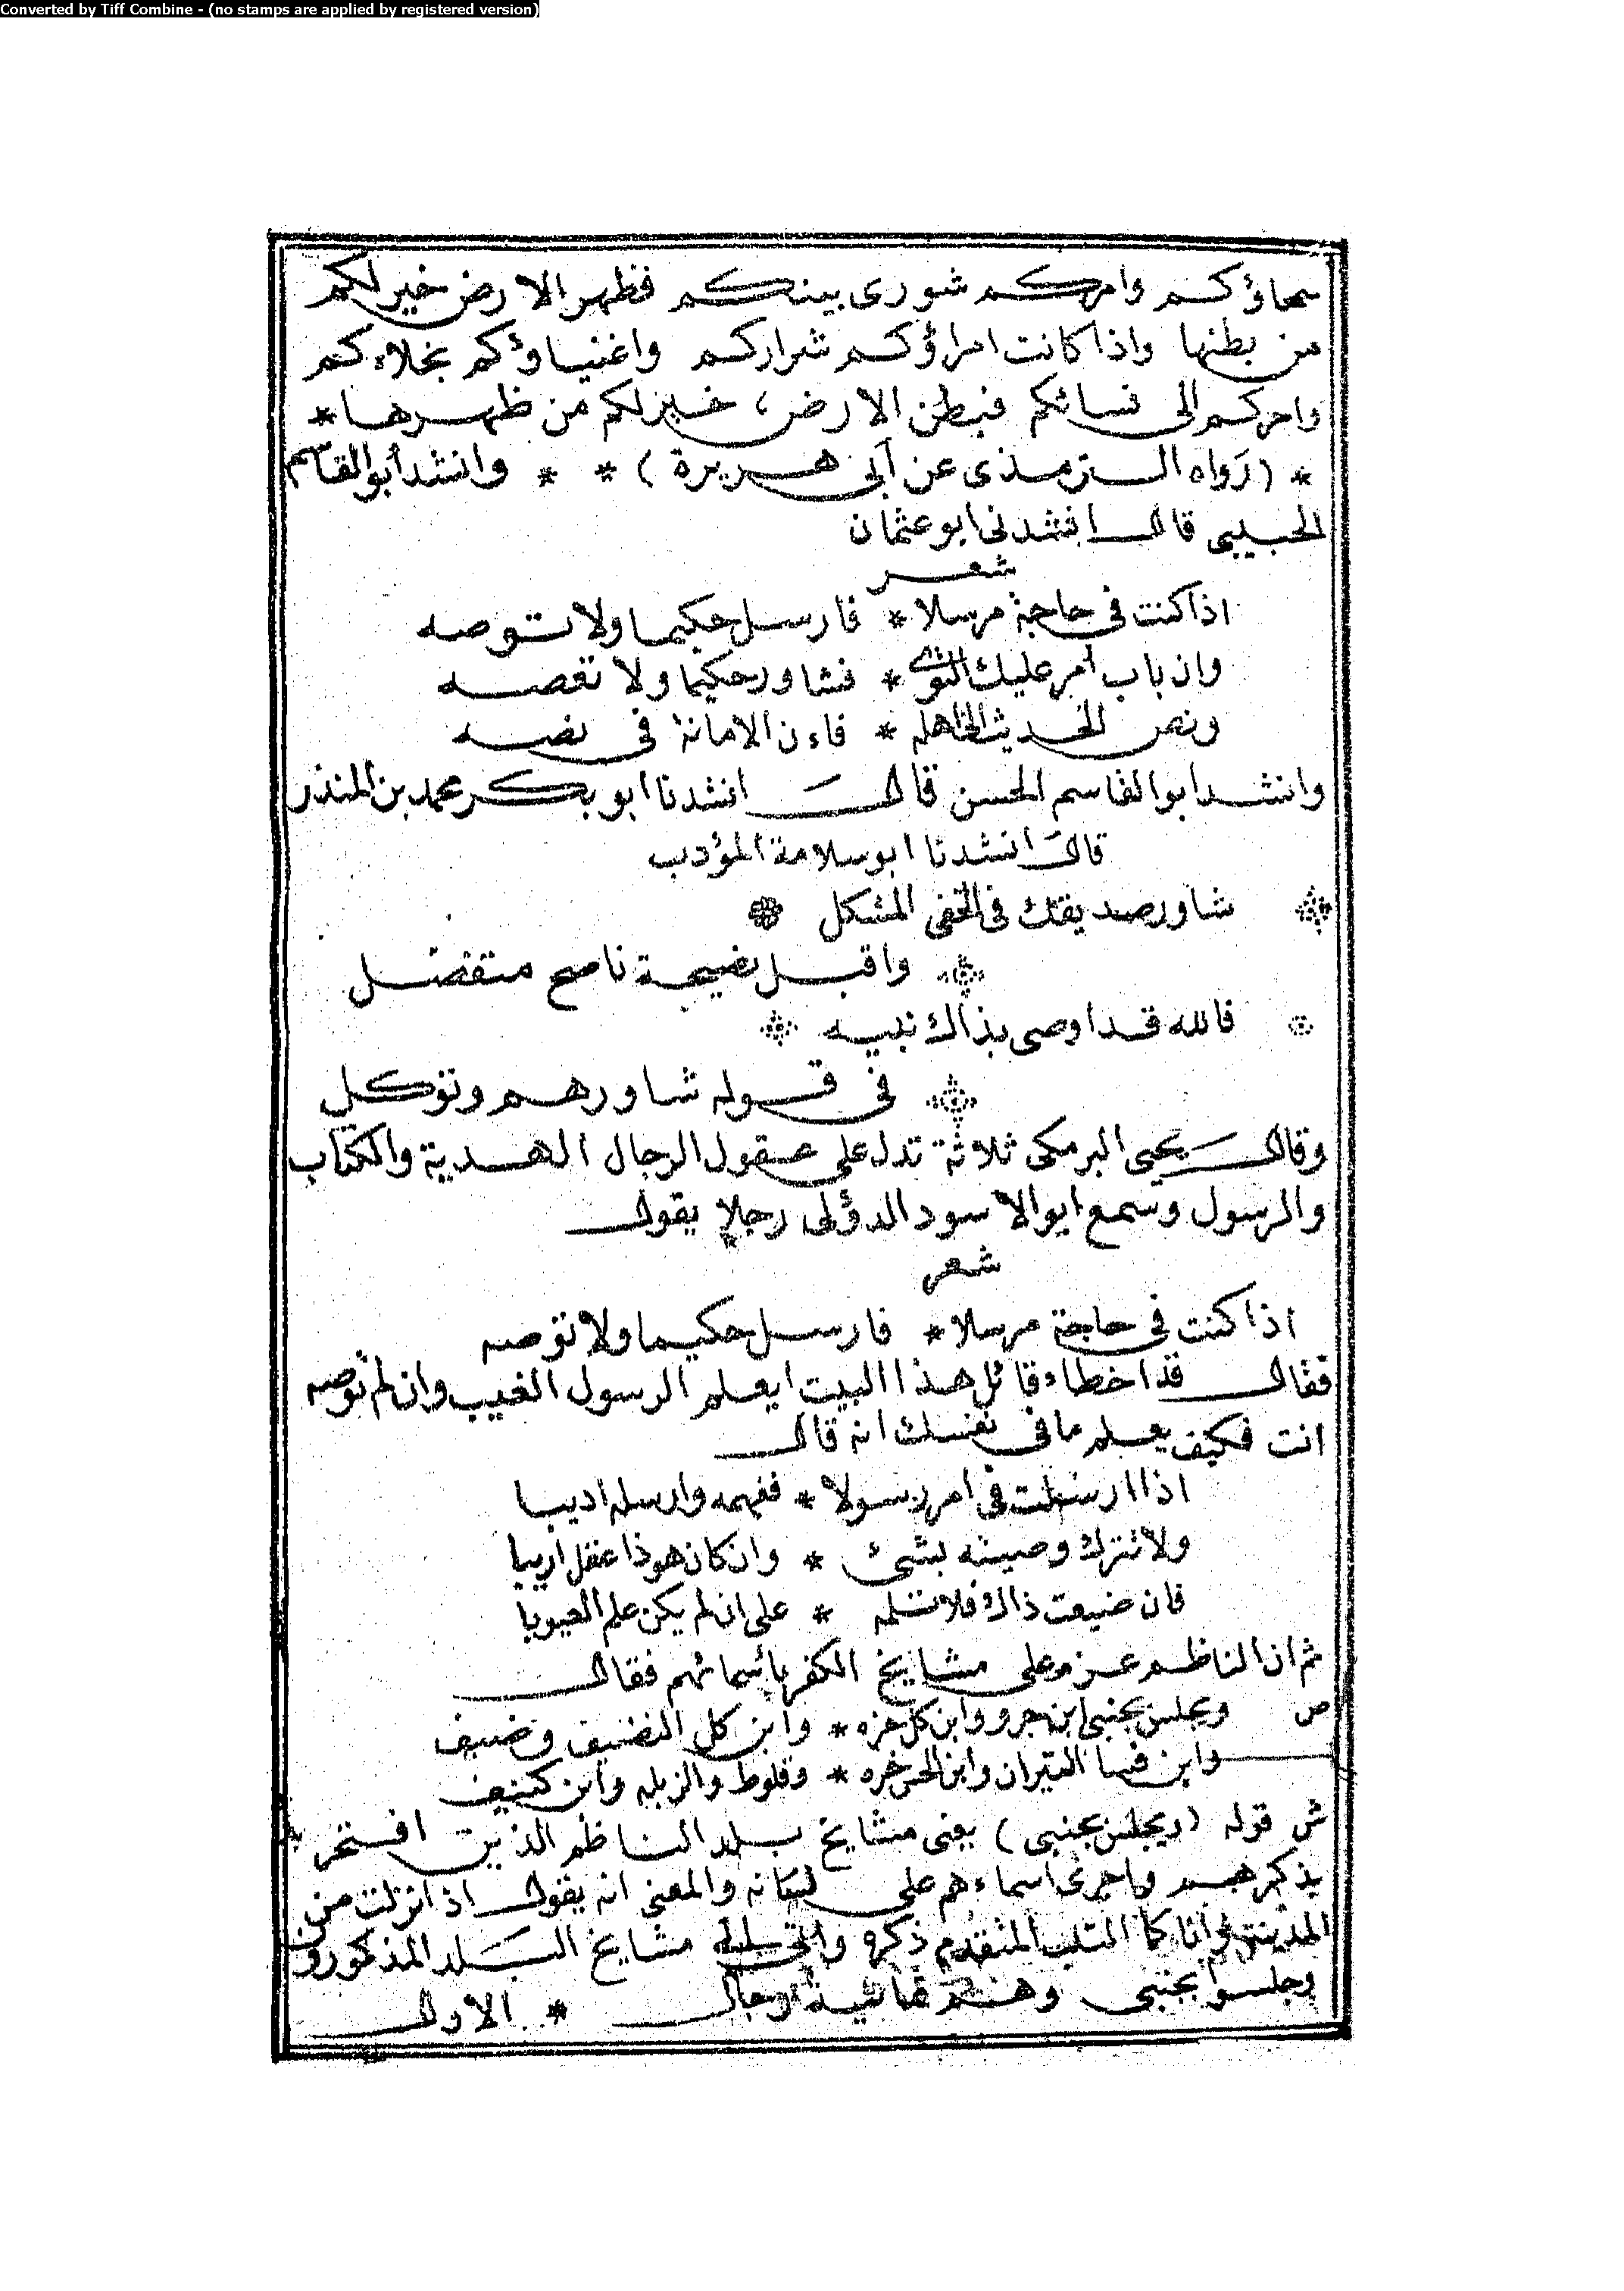 Converted by Tiff Combine - (no stamps are applied by registered version)
سمحاؤكم وامركم شورى بينكم فظهر الارض خير لكم
من بطنها واذا كانت امراؤكم شراركم واغنياؤكم بخلاءكم
وامركم الى نسائكم فبطن الارض، خير لكم من ظهرها *
* (رَواه الترمذى عن أبى هريرة) * * وانشد أبو القاسم
الحبيبى قال انشدنى ابو عثمان
شعر
اذا كنت فى حاجة مرسلا * فارسل حكيما ولا توصه
وان باب أمر عليك التوى * فشاور حكيما ولا تعصه
ونص الحديث الى اهله * فاءن الامانة فى نصه
وانشد ابو القاسم الحسن قال انشدنا ابو بكر محمد بن المنذر
قال انشدنا ابو سلامة المؤدب
شاور صديقك فى الخفى المشكل
واقبل نصيحة ناصح متفضل
فالله قد اوصى بذاك نبيه
فى قوله شاورهم وتوكل
وقال يحيى البرمكى ثلاثة تدل على عقول الرجال الهدية والكتاب
والرسول وسمع ابو الاسود الدؤلى رجلا يقول
شعر
اذا كنت فى حاجة مرسلا * فارسل حكيما ولا توصه
فقال قد اخطاء قائل هذا البيت ايعلم الرسول الغيب وان لم توصه
انت فكيف يعلم ما فى نفسك انه قال
اذا ارسلت فى امر رسولا * ففهمه وارسله اديبا
ولا تترك وصيته بشئ * وان كان هو ذا عقل اريبا
فان ضيعت ذاك فلا تلمه * على ان لم يكن علم الغيوبا
ثم ان الناظم عزم على مشايخ الكفر بأسمائهم فقال
ص ويجلس بجنبى ابن جرو وابن كل خره * وابن كل النضيف وضيف
وابن فسا التيران وابن الحس خره * وقلوط والزبله وابن كنيف
ش قوله (ويجلس بجنبى) يعنى مشايخ بلد الناظم الذين افتخر
بذكرهم واجرى اسماءهم على لسانه والمعنى انه يقول اذا نزلت من
المدينة وانا كما الكلب المتقدم ذكره مشايخ البلد المذكورون
وجلسوا بجنبى وهم ثمانية رجال * الاول